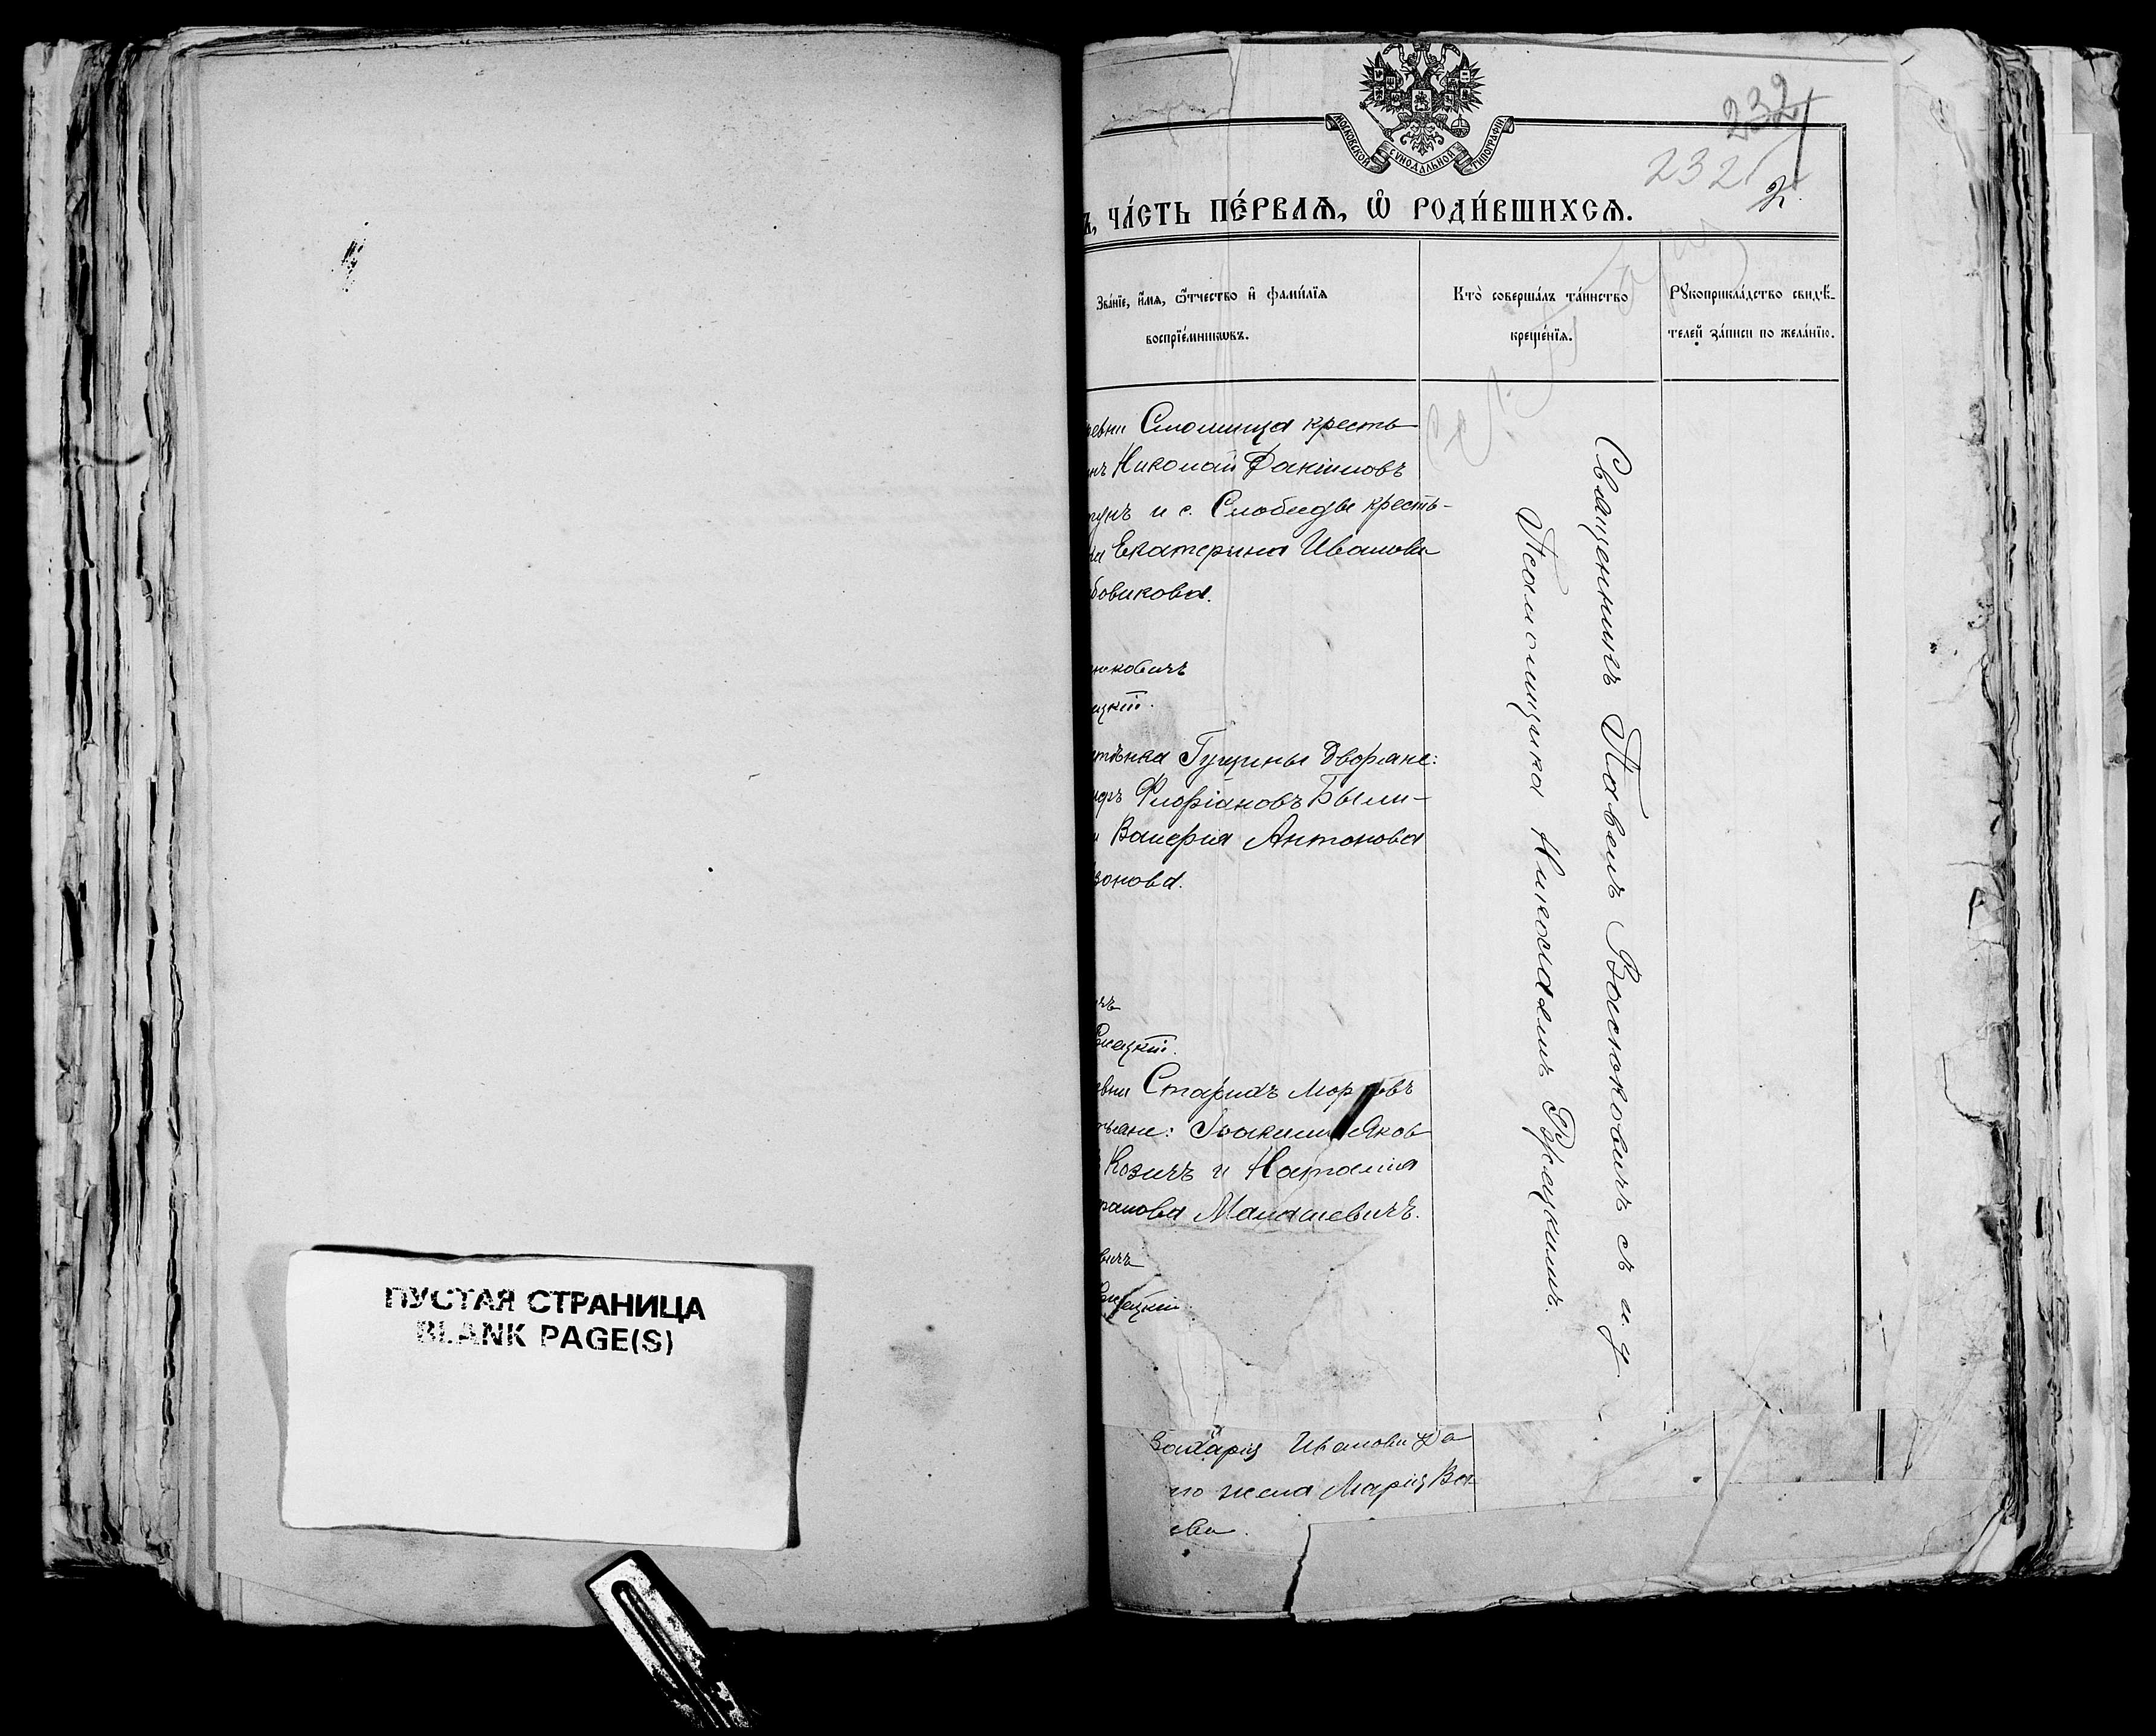 ПУСТАЯ СТРАНИЦА
BLANK PAGE(S)
МОСКОВСКОЙ СУНОДАЛЬНОЙ ТИПОГРАФІИ
232
232
2.
ъ, ча́сть пе́рвая, ѽ роди́вшихся.
Зва́нїе, и҆́мя, ѻ҆́тчество и҆ фами́лїя
воспрїе́мникѡвъ.
Кто̀ соверша́лъ та́инство
креще́нїя.
Рꙋкоприкла́дство свидѣ́-
телей за́писи по жела́нїю.
кресть
Николай Якимовъ
и с. Слободы кресть-
Екатерина Иванова
бовикова.
никовичъ
цкій.
Гущины дворяне:
Флоріановъ Были-
Валерія Антонова
зонова.
ичъ
цкій.
Старихъ
Іоакимъ Яков
Козичъ и Наталія
Малашевичъ.
вичъ
ецкій
Священникъ Павелъ Васюковичъ съ и. д.
Псаломщика Николаемъ Ржецкимъ.
Захарія Ивановъ Да
го жена Марія Ва
ева.